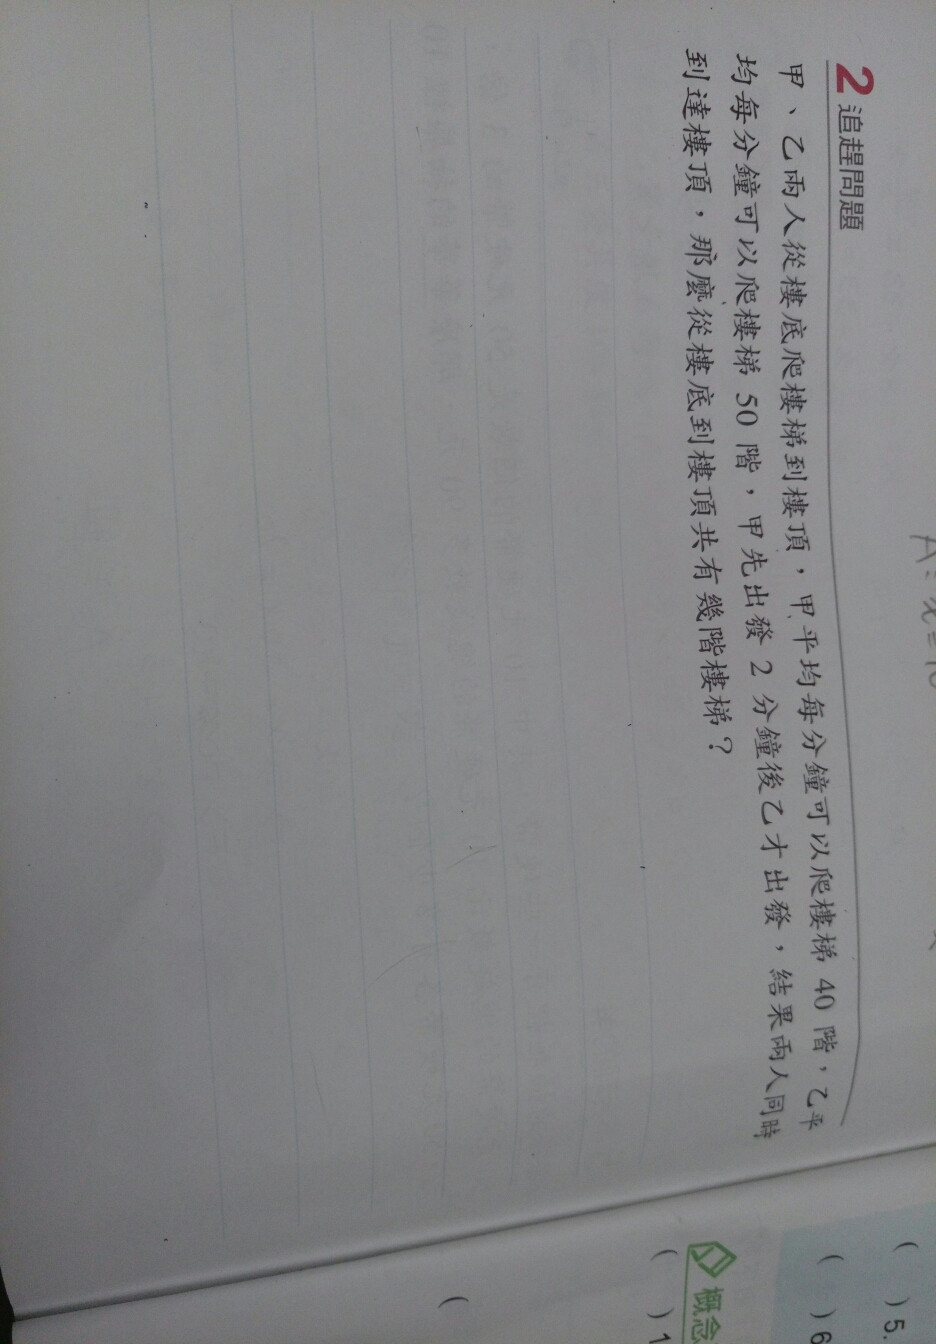 2 追趕問題
甲、乙兩人從樓底爬樓梯到樓頂，甲平均每分鐘可以爬樓梯 40 階，乙平
均每分鐘可以爬樓梯 50 階，甲先出發 2 分鐘後乙才出發，結果兩人同時
到達樓頂，那麼從樓底到樓頂共有幾階樓梯？
( )5
( )6
概念
( )1
(